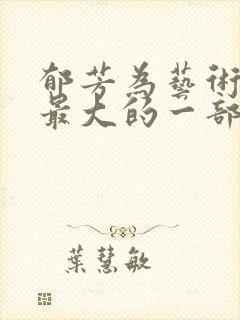 郁芳為藝術
最大的一部
葉慧敏